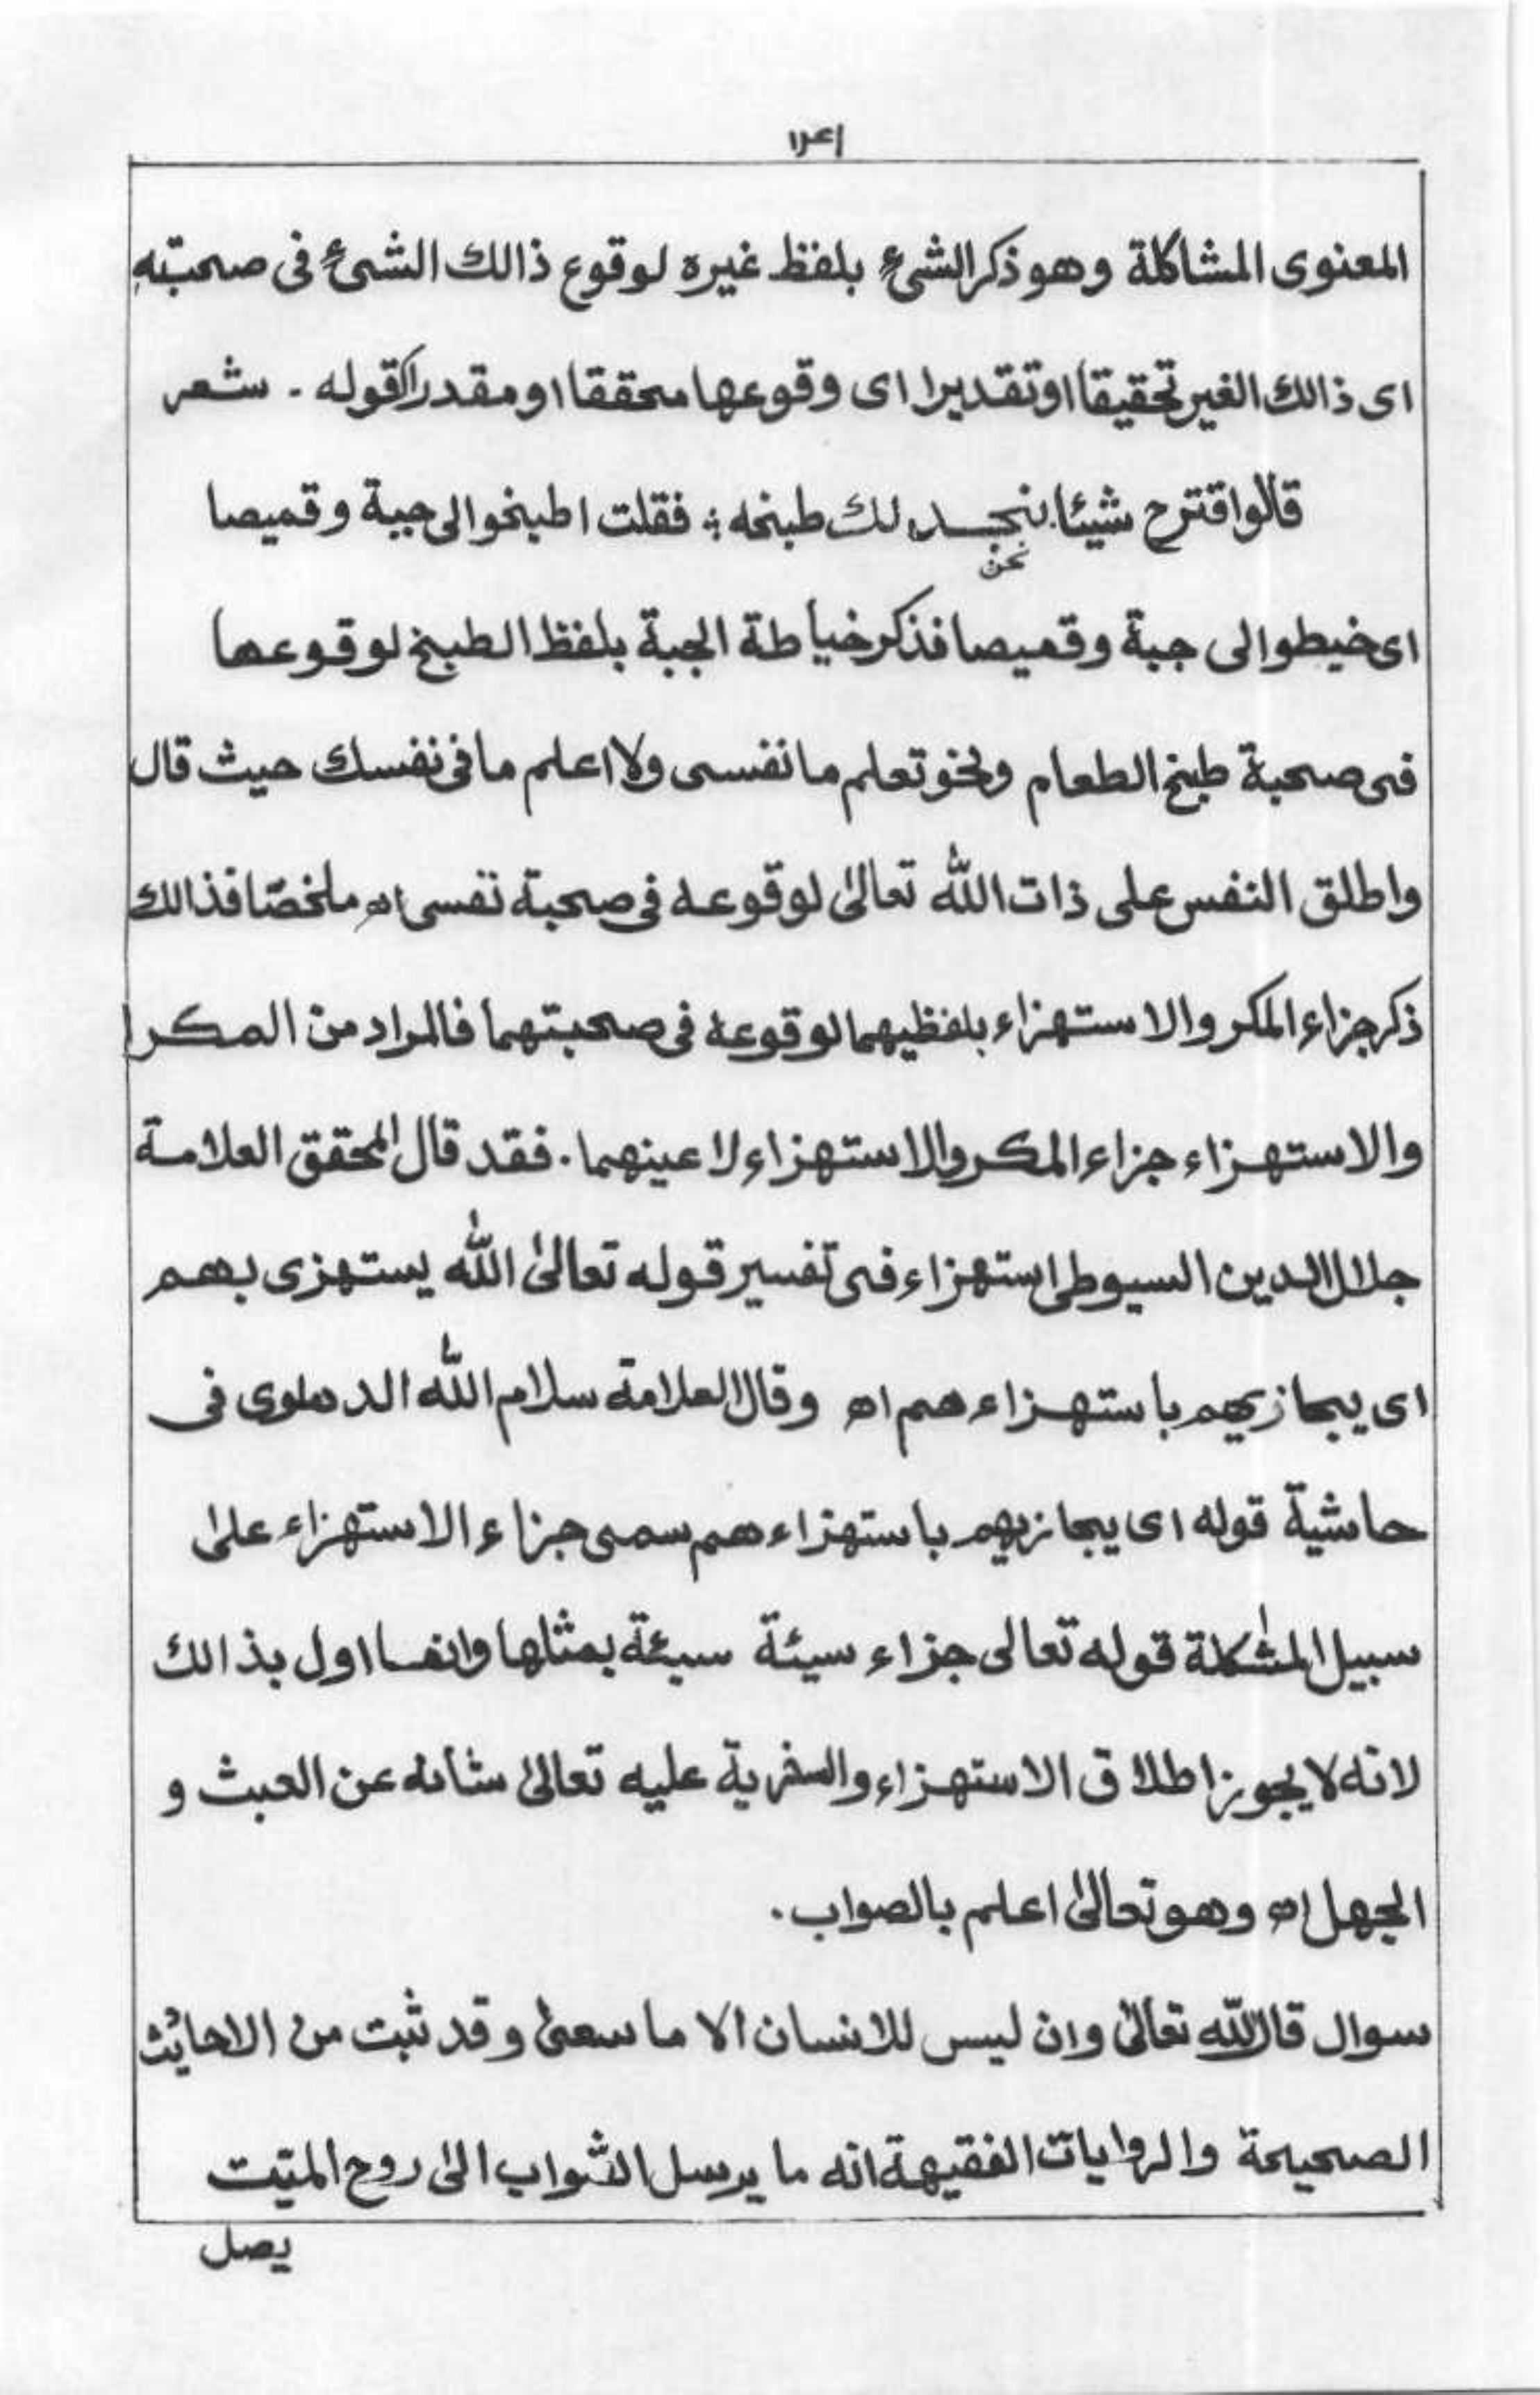 المعنوى المشاكلة وهو ذكر الشىء بلفظ غيره لوقوع ذالك الشىء فى صحبتّهِ
اى ذالك الغير تحقيقا او تقديرا اى وقوعها محققا او مقدرا كقوله - شعر
قالوا اقترح شيئا نجد لك طبخه ؛ فقلت اطبخوا لى جبة وقميصا
نحن
اى خيطوا لى جبة وقميصا فذكر خياطة الجبة بلفظ الطبخ لوقوعها
فى صحبة طبخ الطعام ونحو تعلم ما نفسى ولا اعلم ما فى نفسك حيث قال
واطلق النفس على ذات الله تعالىٰ لوقوعه فى صحبة نفسى اھ ملخصًا فذالك
ذكر جزاء المكر والاستهزاء بلفظيهما لوقوعه فى صحبتهما فالمراد من المكر
والاستهزاء جزاء المكر والاستهزاء لا عينهما . فقد قال المحقق العلامة
جلال الدين السيوطى استهزاء فى تفسير قوله تعالىٰ الله يستهزى بهم
اى يجازيهم باستهزاء هم اھ وقال العلامة سلام الله الدهلوى فى
حاشية قوله اى يجازيهم باستهزاء هم سمى جزاء الاستهزاء علىٰ
سبيل المشٰكلة قوله تعالى جزاء سيئة سيئة بمثلها وانما اول بذالك
لانه لا يجوز اطلاق الاستهزاء والسخرية عليه تعالىٰ شأنه عن العبث و
الجهل اھ وهو تعالىٰ اعلم بالصواب .
سوال قال الله تعالىٰ وان ليس للانسان الا ما سعىٰ وقد ثبت من الاحاديث
الصحيحة والروايات الفقيهة انه ما يرسل الثواب الىٰ روح الميّت
يصل